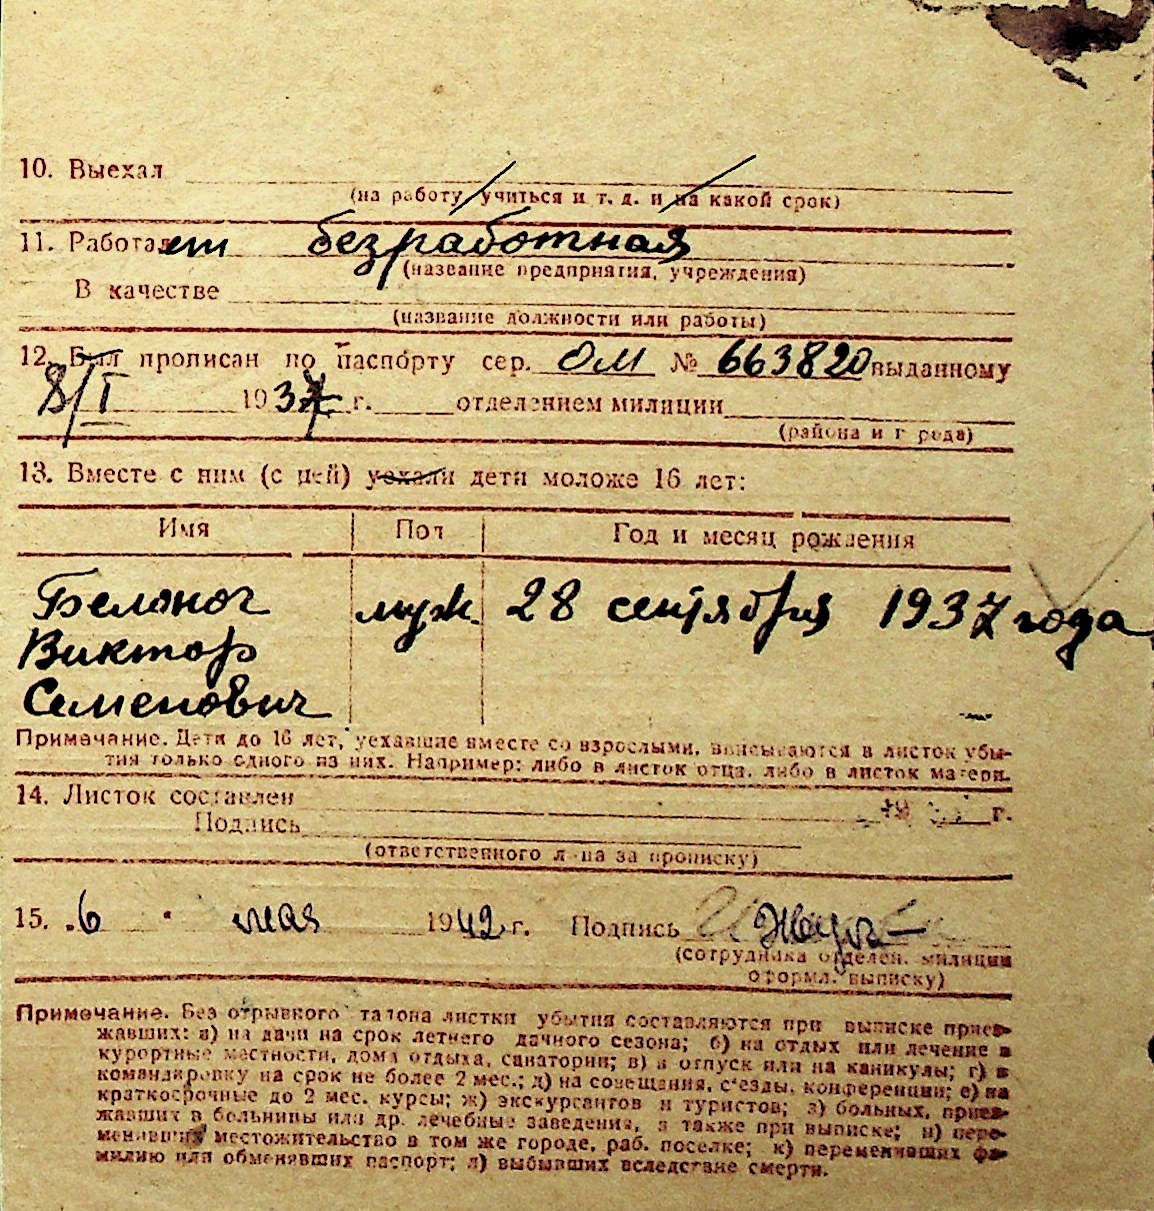 10. Выехал
(на работу, учиться и т. д. и на какой срок)
11. Работает безработная
(название предприятия, учреждения)
В качестве
(название должности или работы)
12. Был прописан по паспорту сер. ОМ № 663820 выданному
8/I 1937 г. отделением милиции
(района и города)
13. Вместе с ним (с ней) уехали дети моложе 16 лет:
Имя Пол Год и месяц рождения
Белоног муж. 28 сентября 1937 года
Виктор
Семенович
Примечание. Дети до 16 лет, уехавшие вместе со взрослыми, вписываются в листок убы-
тия только одного из них. Например: либо в листок отца, либо в листок матери.
14. Листок составлен 19 г.
Подпись
(ответственного л-ца за прописку)
15. „6 " мая 1942 г. Подпись
(сотрудника отделен. милиции
оформл. выписку)
Примечание. Без отрывного талона листки убытия составляются при выписке приез-
жавших: а) на дачи на срок летнего дачного сезона; б) на отдых или лечение в
курортные местности, дома отдыха, санатории; в) в отпуск или на каникулы; г) в
командировку на срок не более 2 мес.; д) на совещания, съезды, конференции; е) на
краткосрочные до 2 мес. курсы; ж) экскурсантов и туристов; з) больных, приез-
жавших в больницы или др. лечебные заведения, а также при выписке; и) пере-
менивших местожительство в том же городе, раб. поселке; к) переменивших фа-
милию или обменявших паспорт; л) выбывших вследствие смерти.